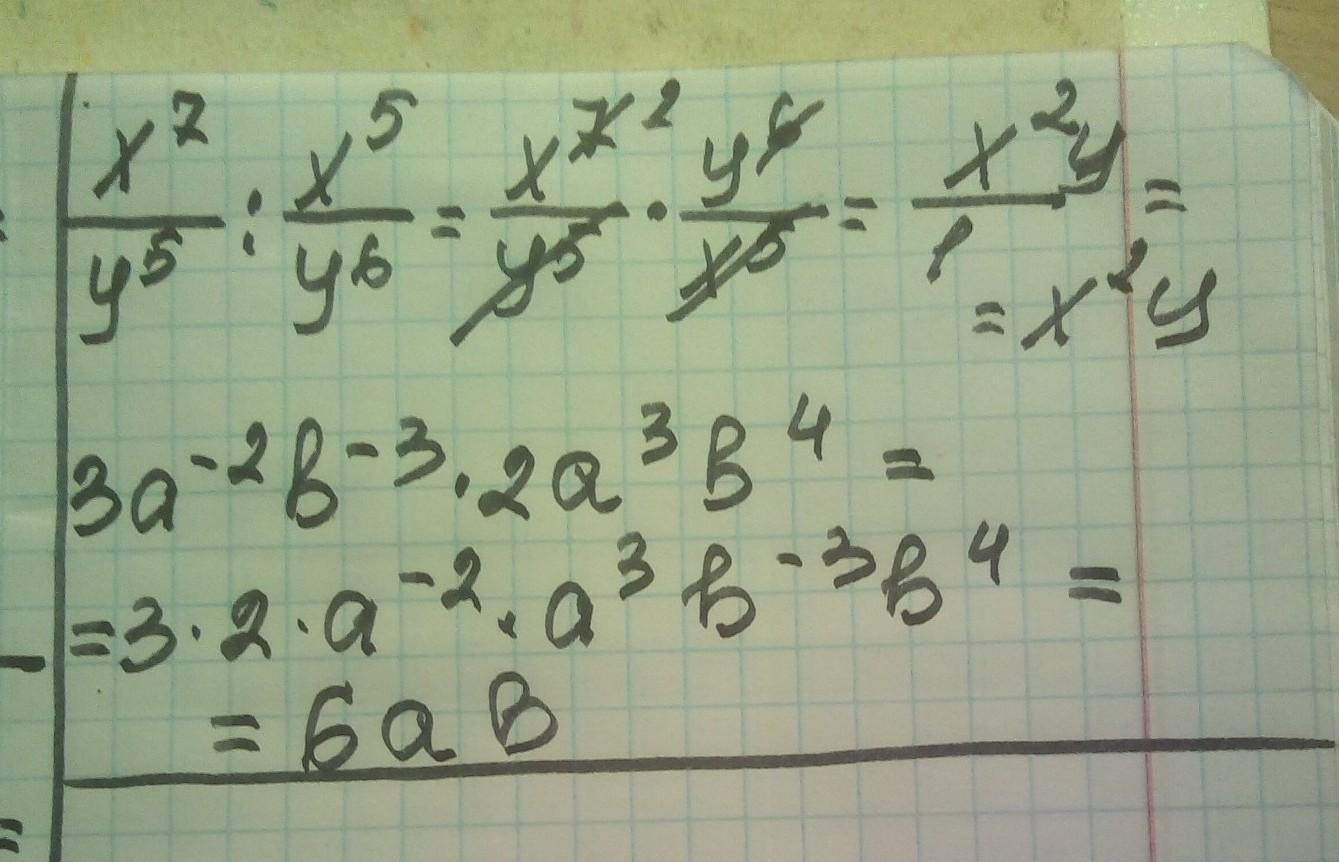 x⁷/y⁵ : x⁵/y⁶ = x⁷²/y⁵ · y⁶/x⁵ = x²y/1 =
= x²y
3a⁻²b⁻³ · 2a³b⁴ =
= 3 · 2 · a⁻² · a³ b⁻³b⁴ =
= 6ab